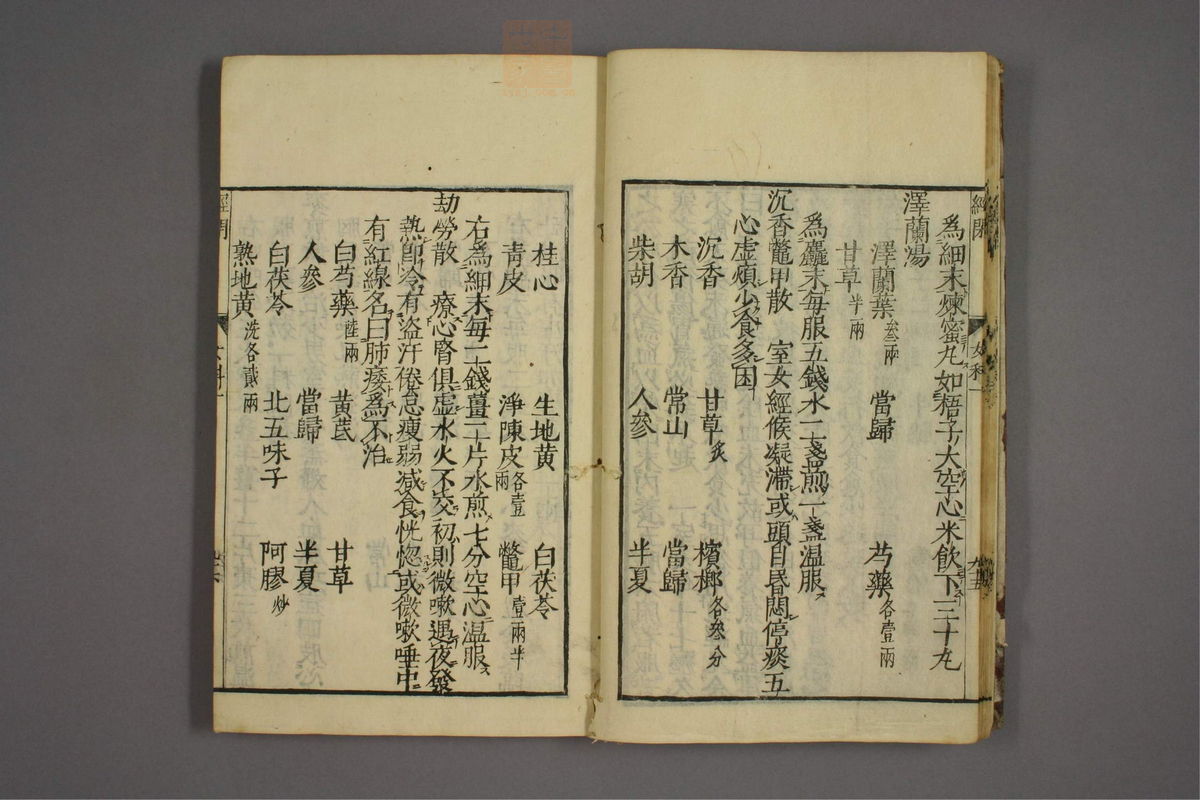 經閉
女科一
九十五
爲細末煉蜜丸如梧子大空心米飲下三十丸
澤蘭湯
澤蘭葉叁兩 當歸 芍藥各壹兩
甘草半兩
爲麤末每服五錢水二盞煎一盞溫服
沉香鼈甲散 室女經候凝滯或頭目昏悶停痰五
心虛煩少食多困
沉香 甘草炙 檳榔各叁分
木香 常山 當歸
柴胡 人參 半夏
桂心 生地黄 白茯苓
靑皮 淨陳皮各壹兩 鼈甲壹兩半
右爲細末每二錢薑二片水煎七分空心溫服
劫勞散 療心腎俱虛水火不交初則微嗽遇夜發
熱卽冷有盜汗倦怠瘦弱減食恍惚或微嗽唾中
有紅線名曰肺痿爲不治
白芍藥陸兩 黄茋 甘草
人參 當歸 半夏
白茯苓 北五味子 阿膠炒
熟地黄洗各貳兩
經閉
女科一